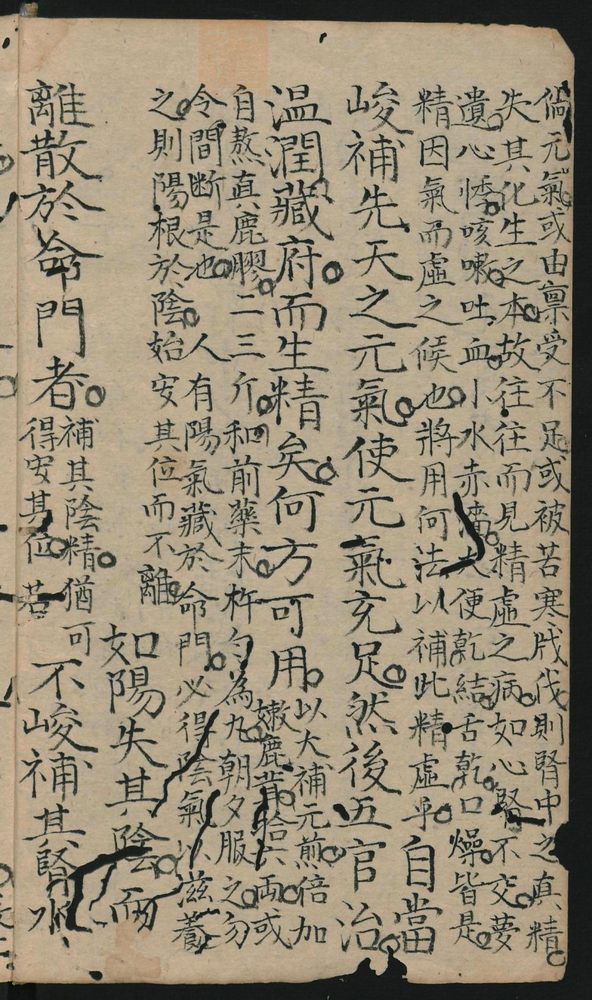 倘元氣或由稟受不足或被苦寒戕伐則腎中之真精。
失其化生之本。故往往而見精虛之病。如心腎不交夢
遺。心悸咳嗽吐血。小水赤濇。大便乾結。舌乾口燥皆是。
精因氣而虛之候也。將用何法以補此精虛乎。
自當
峻補先天之元氣。使元氣充足。然後五官治。
温潤藏府。而生精矣。何方可用。
以大補元煎。倍加
嫩鹿拾六兩。或
自熬真鹿膠。二三斤。和前藥末。杵勻為丸。朝夕服之。勿
令間斷是也。人有陽氣藏於命門。必得陰氣以滋養
之。則陽根於陰。始安其位而不離。
如陽失其陰而
離散於命門者。
補其陰精。猶可
得安其位。若
不峻補其腎水